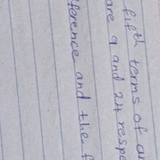 fifth terms of
are 9 and 24 resp
ference and the f